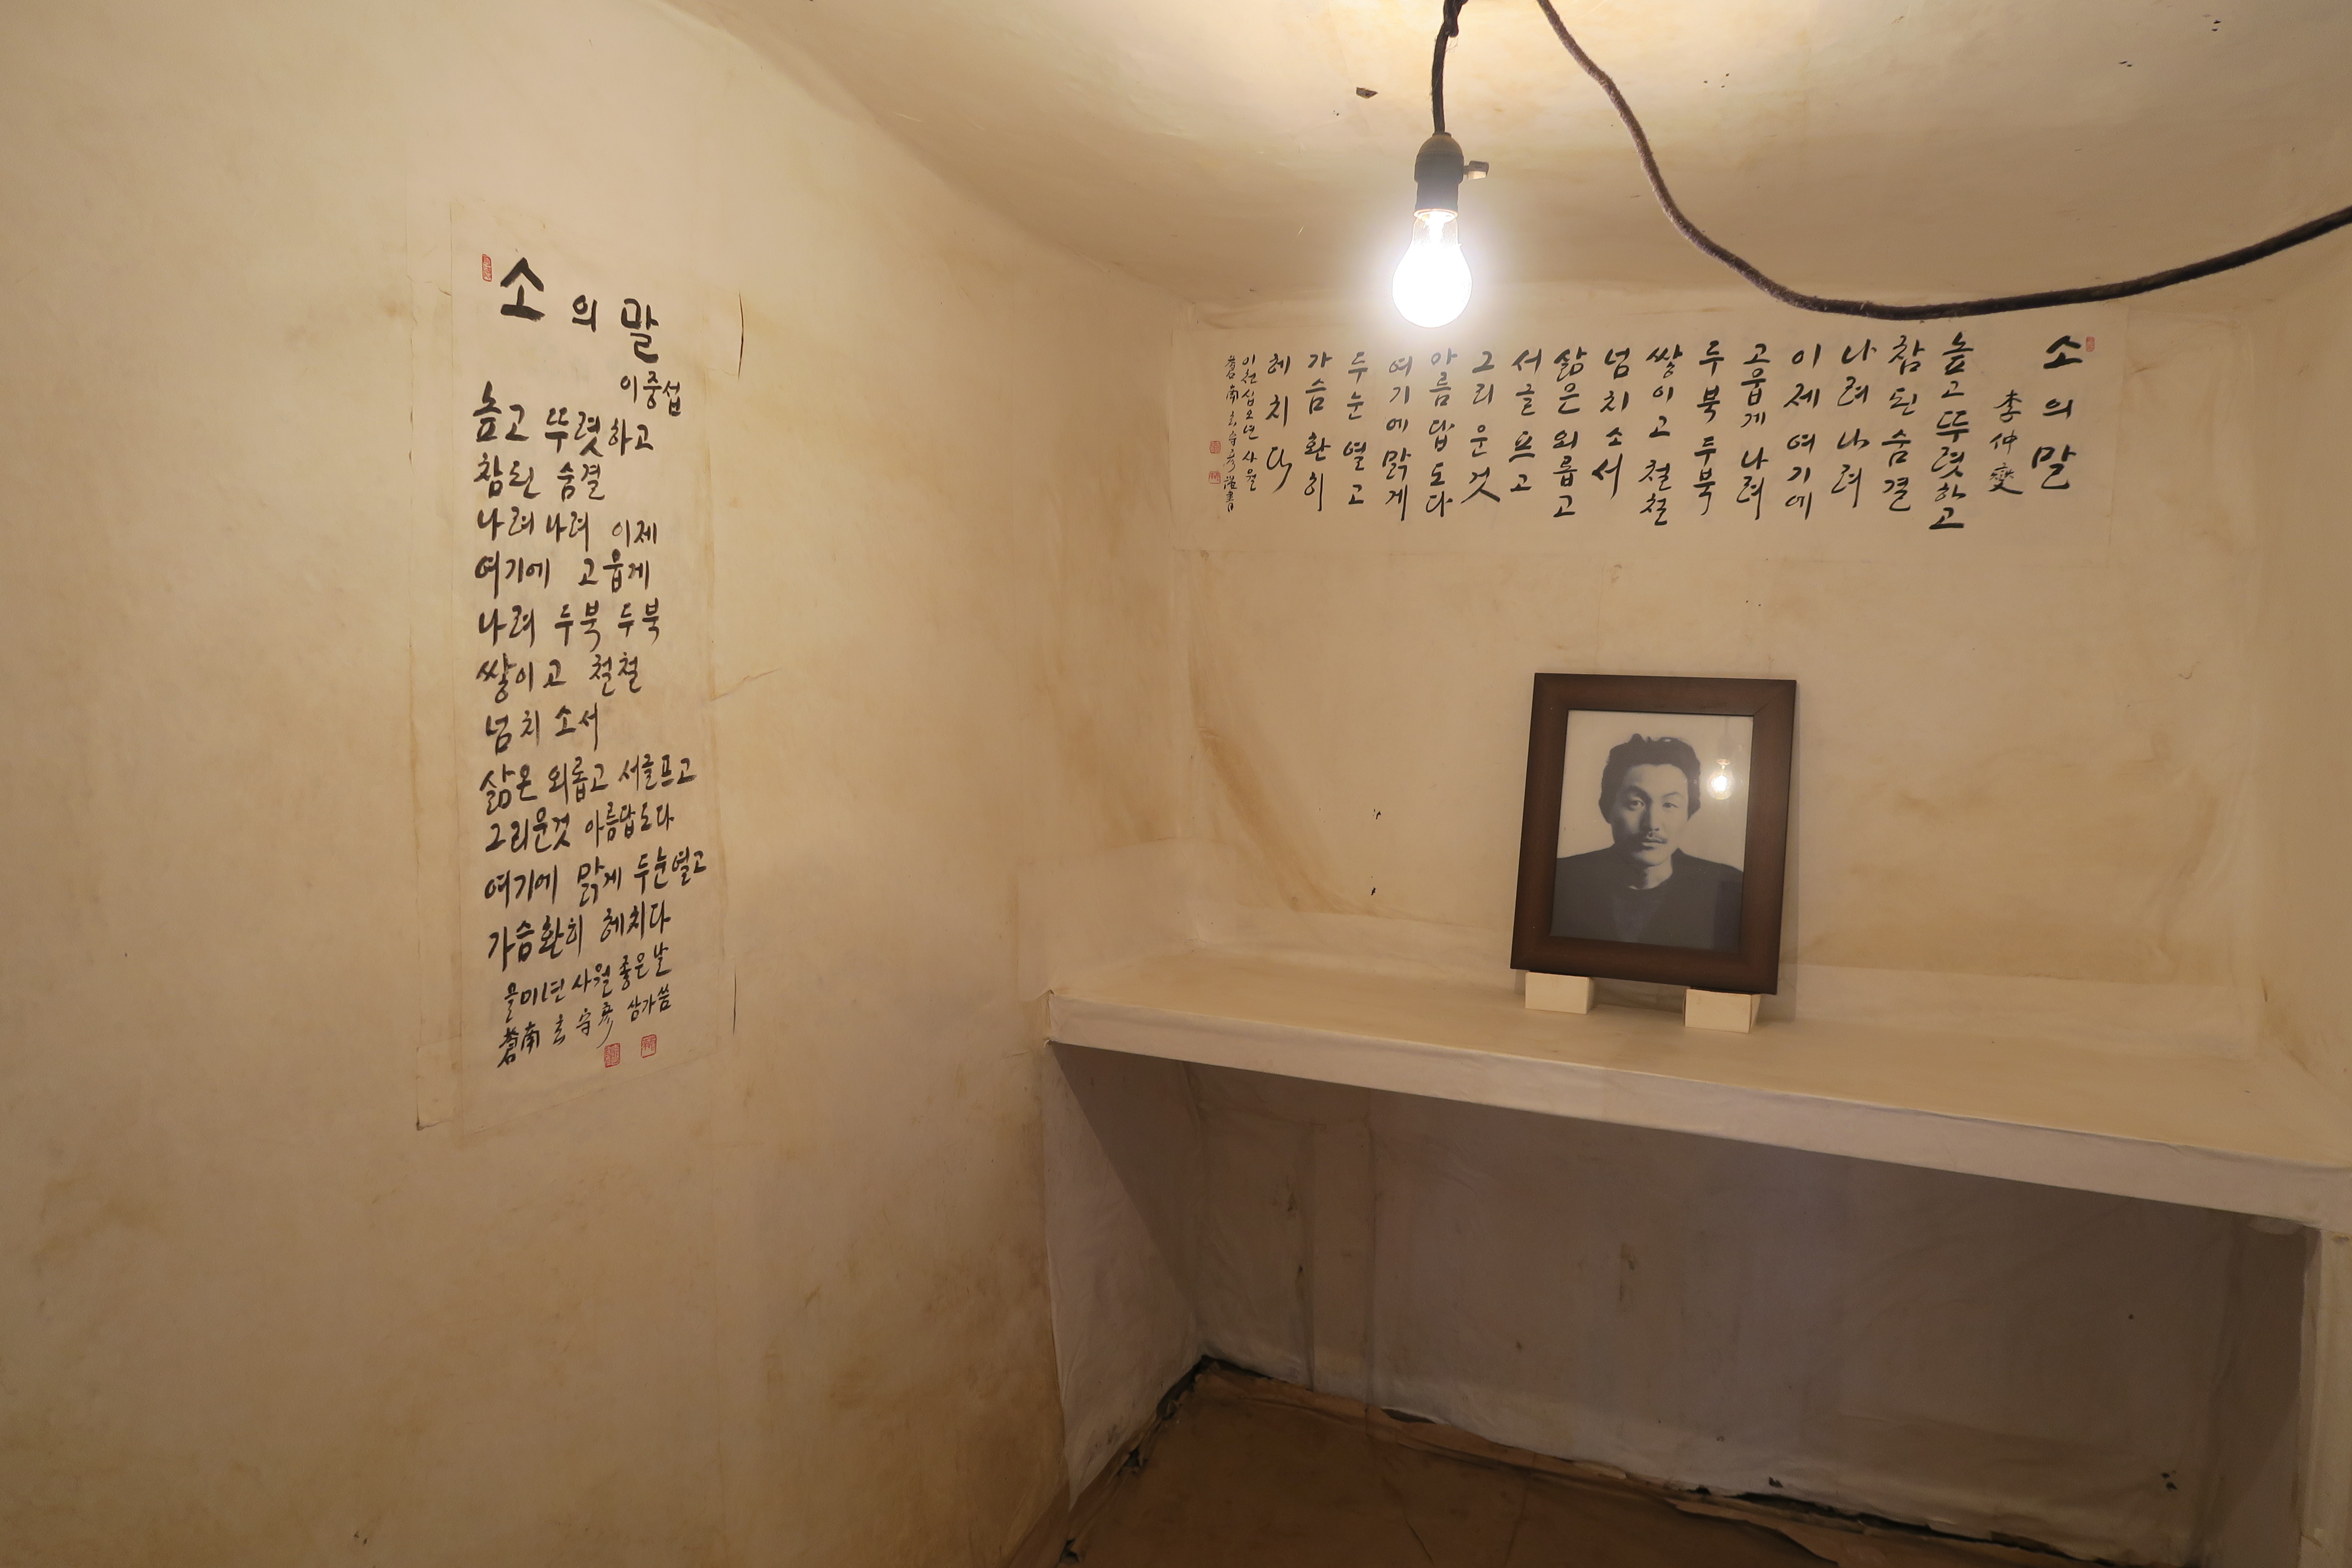 소의 말
이중섭
높고 뚜렷하고
참된 숨결
나려 나려 이제
여기에 고웁게
나려 두북 두북
쌓이고 철철
넘치소서
삶은 외롭고 서글프고
그리운것 아름답도다
여기에 맑게 두눈열고
가슴환히 헤치다
을미년 사월 좋은날
蒼南 玄守彦 삼가씀
소의 말
李仲燮
높고 뚜렷하고
참된 숨결
나려 나려
이제 여기에
고웁게 나려
두북 두북
쌓이고 철철
넘치소서
삶은 외롭고
서글프고
그리운것
아름답도다
여기에 맑게
두눈 열고
가슴 환히
헤치다
이천십오년 사월
蒼南 玄守彦 謹書